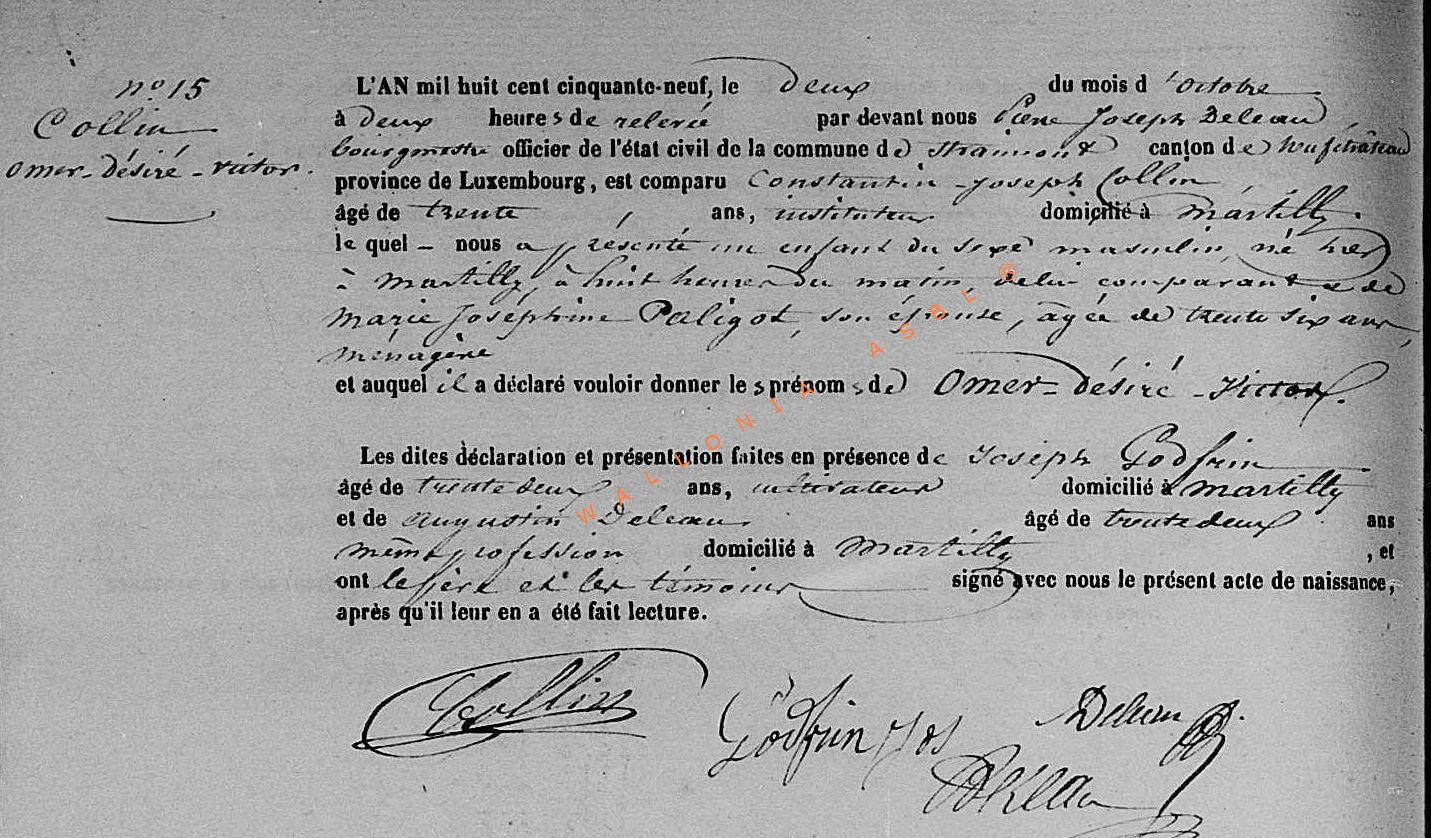 n° 15
Collin
Omer-désiré-victor.
L'AN mil huit cent cinquante-neuf, le deux du mois d'octobre
à deux heures de relevée par devant nous Pierre Joseph Deleau,
bourgmestre officier de l'état civil de la commune de Straimont canton de Neufchâteau
province de Luxembourg, est comparu Constantin-Joseph Collin,
âgé de trente, ans, instituteur domicilié à Martilly.
lequel - nous a présenté un enfant du sexe masculin, né hier
à Martilly, à huit heures du matin, de lui comparant & de
Marie Joséphine Paligot, son épouse, âgée de trente six ans,
ménagère
et auquel il a déclaré vouloir donner les prénoms de Omer-désiré-Victor.
Les dites déclaration et présentation faites en présence de Joseph Godfrin
âgé de trente deux ans, cultivateur domicilié à Martilly
et de Augustin Deleau âgé de trente deux ans
même profession domicilié à Martilly, et
ont le père et les témoins signé avec nous le présent acte de naissance,
après qu'il leur en a été fait lecture.
Collin
Godfrin Jos
Deleau
WALLONIA ASBL ©